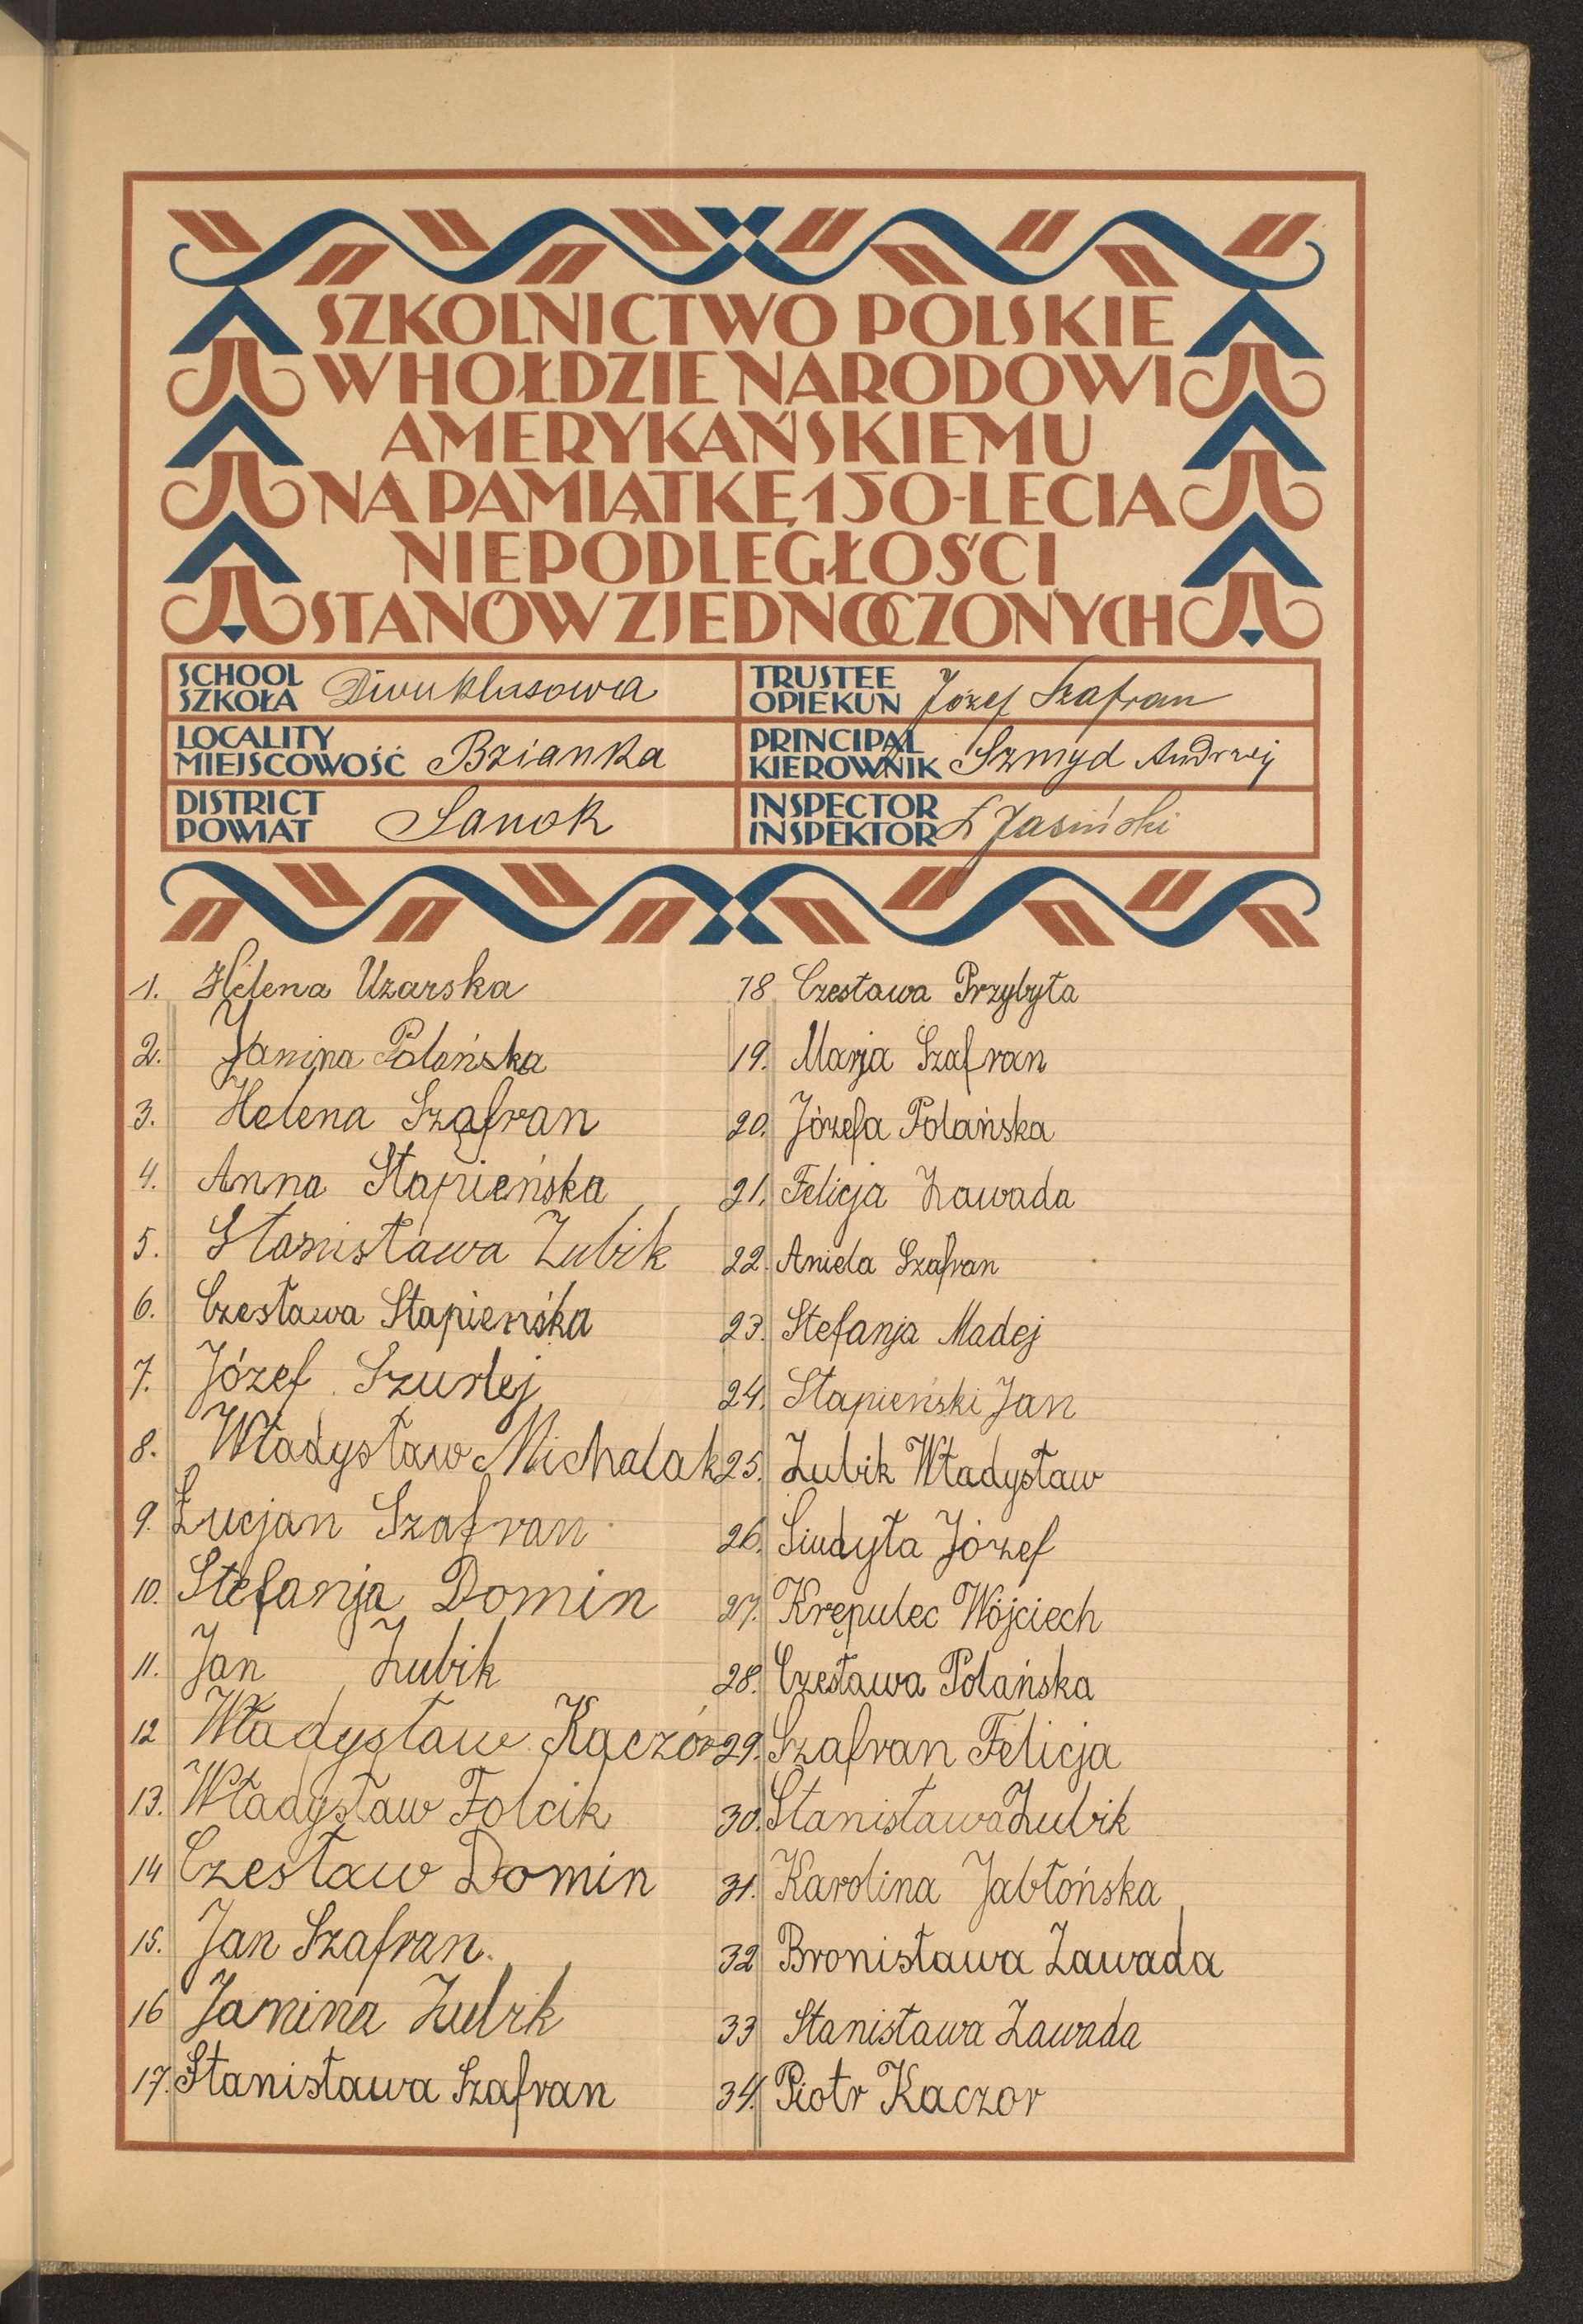 SZKOLNICTWO POLSKIE
W HOŁDZIE NARODOWI
AMERYKAŃSKIEMU
NA PAMIĄTKĘ 150-LECIA
NIEPODLEGŁOŚCI
STANÓW ZJEDNOCZONYCH
SCHOOL
SZKOŁA Dwuklasowa
TRUSTEE
OPIEKUN Józef Szafran
LOCALITY
MIEJSCOWOŚĆ Bzianka
PRINCIPAL
KIEROWNIK Szmyd Andrzej
DISTRICT
POWIAT Sanok
INSPECTOR
INSPEKTOR Jasiński
1. Helena Uzarska
2. Janina Polańska
3. Helena Szafran
4. Anna Stapieńska
5. Stanisława Żubik
6. Czesława Stapieńska
7. Józef Szurlej
8. Władysław Michalak
9. Łucjan Szafran
10. Stefanja Domin
11. Jan Żubik
12 Władysław Kaczór
13. Władysław Folcik
14 Czesław Domin
15. Jan Szafran.
16 Janina Żubik
17. Stanisława Szafran
18 Czesława Przybyła
19. Marja Szafran
20. Józefa Polańska
21. Felicja Zawada
22. Aniela Szafran
23. Stefanja Madej
24. Stapieński Jan
25. Żubik Władysław
26. Siudyła Józef
27. Krępulec Wojciech
28. Czesława Polańska
29. Szafran Felicja
30. Stanisława Żubik
31. Karolina Jabłońska
32 Bronisława Zawada
33 Stanisława Zawada
34. Piotr Kaczor